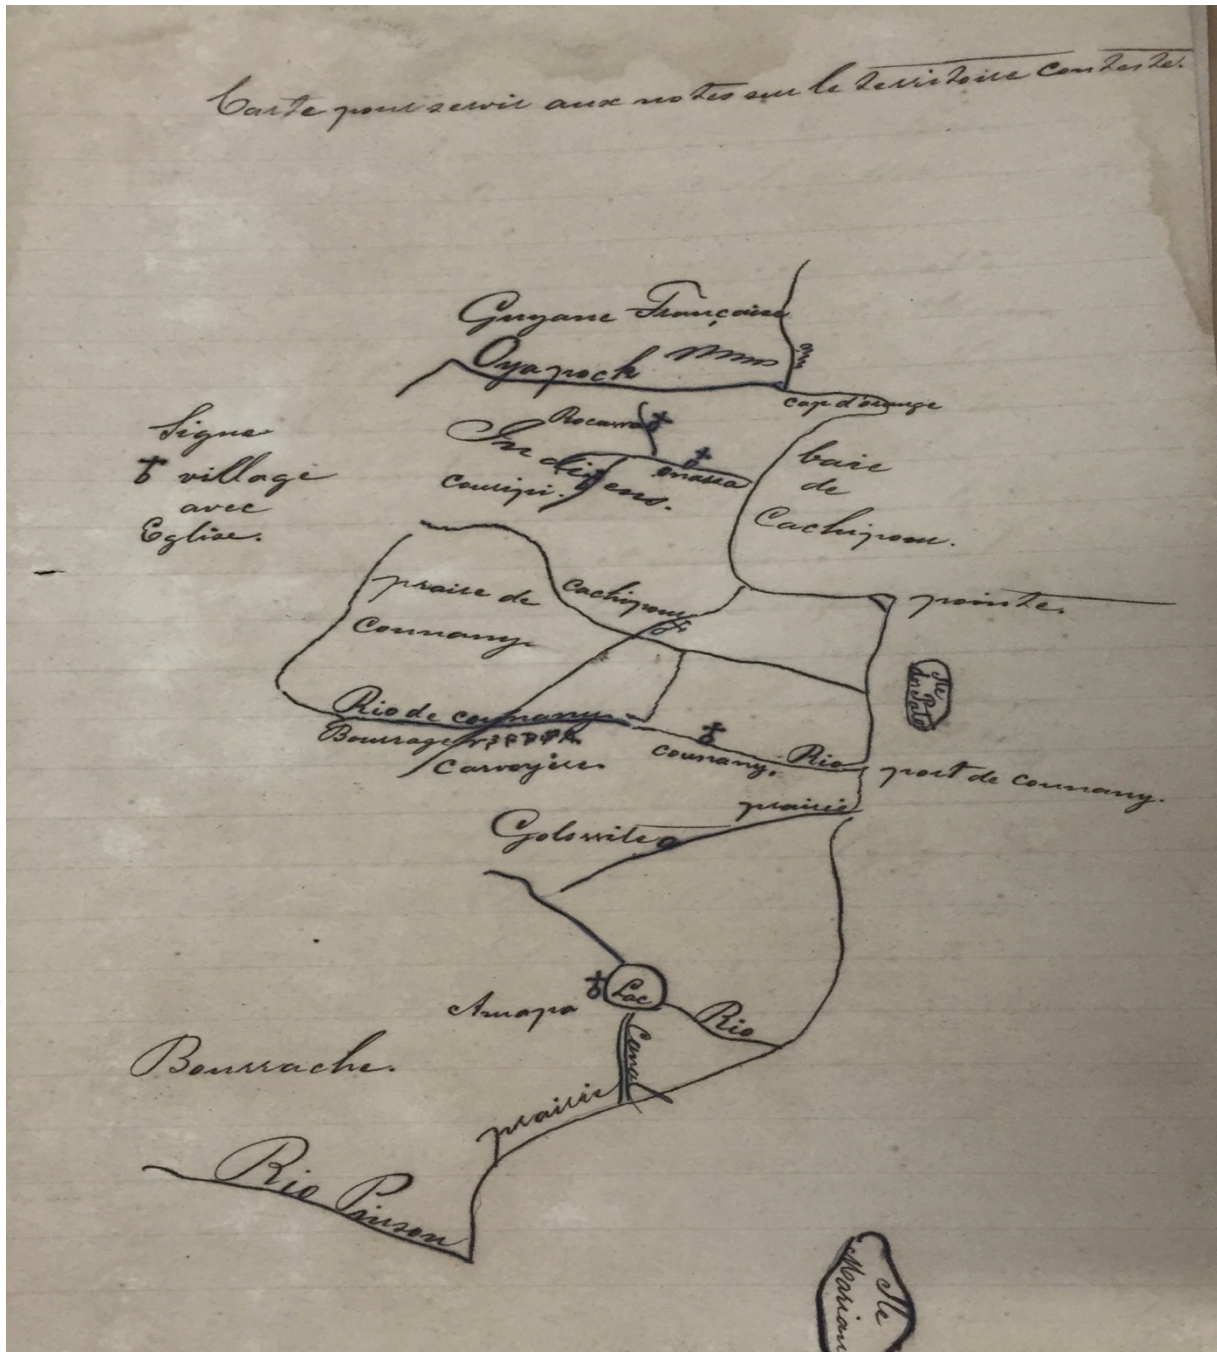 Carte pour servir aux notes sur le territoire contesté.
Guyane Française
Oyapock
cap d'orange
Rocawa
Signe
village
avec
Eglise.
Indigens.
ouassa
couripi.
baie
de
Cachipour.
praire de
Counany.
Cachipour
pointe.
Ile
Rio de counany
counany.
Rio
port de counany.
prairie
Amapa
Lac
Rio
Canal
Bourrache.
prairie
Rio Pinson
Ile